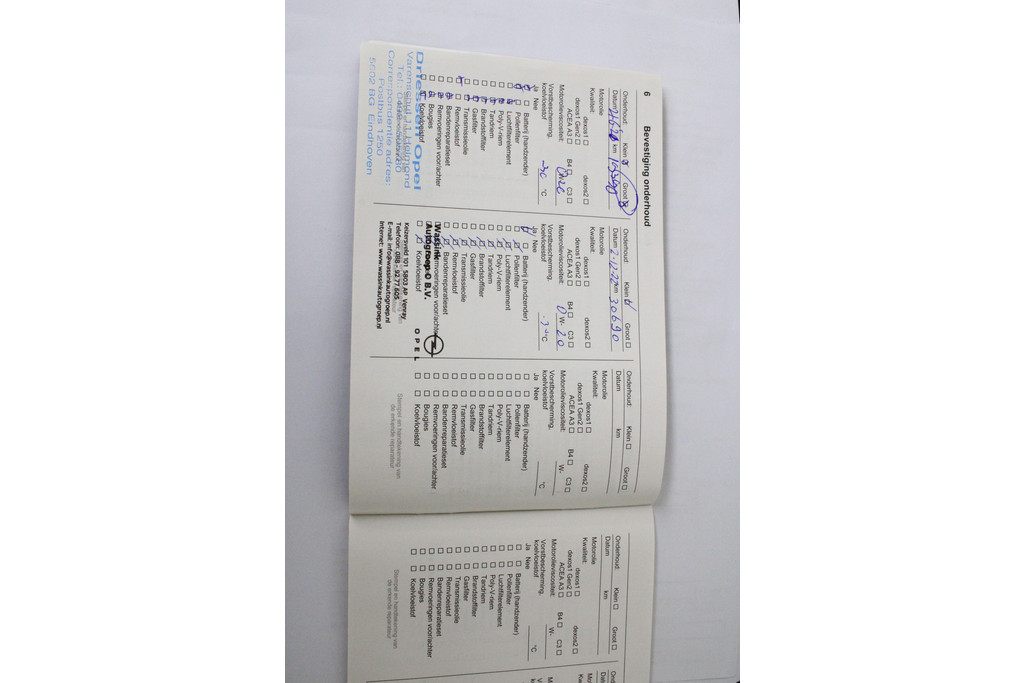 6 Bevestiging onderhoud
Onderhoud: Klein Groot
Datum km
Motorolie
Kwaliteit: dexos1 dexos2
dexos1 Gen2
ACEA A3 B4 C3
Motorolieviscositeit: 0W-20
Vorstbescherming,
koelvloeistof -30 °C
Ja Nee
Batterij (handzender)
Pollenfilter
Luchtfilterelement
Poly-V-riem
Tandriem
Brandstoffilter
Gasfilter
Transmissieolie
Remvloeistof
Bandenreparatieset
Remvoeringen voor/achter
Bougies
Koelvloeistof
Driessen Opel
Varenschut 11 Helmond
Correspondentie adres:
Postbus 1250
5602 BG Eindhoven
Onderhoud: Klein Groot
Datum 2-12-22 km 30690
Motorolie
Kwaliteit: dexos1 dexos2
dexos1 Gen2
ACEA A3 B4 C3
Motorolieviscositeit: 0 W- 20
Vorstbescherming,
koelvloeistof °C
Ja Nee
Batterij (handzender)
Pollenfilter
Luchtfilterelement
Poly-V-riem
Tandriem
Brandstoffilter
Gasfilter
Transmissieolie
Remvloeistof
Bandenreparatieset
Remvoeringen voor/achter
Koelvloeistof
Wassink
Autogroep O B.V.
Keizersveld 101 5803 AP Venray
Telefoon: 088 - 92 77 605
E-mail: info@wassinkautogroep.nl
Internet: www.wassinkautogroep.nl
OPEL
Onderhoud: Klein Groot
Datum km
Motorolie
Kwaliteit: dexos1 dexos2
dexos1 Gen2
ACEA A3 B4 C3
Motorolieviscositeit: W-
Vorstbescherming,
koelvloeistof °C
Ja Nee
Batterij (handzender)
Pollenfilter
Luchtfilterelement
Poly-V-riem
Tandriem
Brandstoffilter
Gasfilter
Transmissieolie
Remvloeistof
Bandenreparatieset
Remvoeringen voor/achter
Bougies
Koelvloeistof
Stempel en handtekening van
de erkende reparateur
Onderhoud: Klein Groot
Datum km
Motorolie
Kwaliteit: dexos1 dexos2
dexos1 Gen2
ACEA A3 B4 C3
Motorolieviscositeit: W-
Vorstbescherming,
koelvloeistof °C
Ja Nee
Batterij (handzender)
Pollenfilter
Luchtfilterelement
Poly-V-riem
Tandriem
Brandstoffilter
Gasfilter
Transmissieolie
Remvloeistof
Bandenreparatieset
Remvoeringen voor/achter
Bougies
Koelvloeistof
Stempel en handtekening van
de erkende reparateur